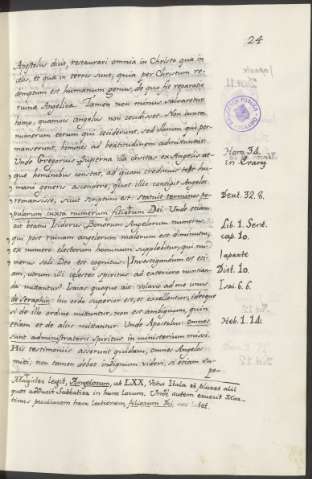 24
Apostolus dicit, restaurari omnia in Christo quæ in
cælis, et quæ in terris sunt, quia per Christum re-
demptum est humanum genus, de quo fit reparatio
ruinæ Angelicæ. Tamen non minus salvaretur
homo, quamvis angelus non cecidisset. Non iuxta
numerum eorum qui ceciderunt, sed illorum qui per-
manserunt, homines ad beatitudinem admittuntur.
Unde Gregorius: Superna illa civitas ex Angelis at-
que hominibus constat, ad quam credimus tot hu-
mani generis ascendere, quot illic contigit Angelos
remansisse, sicut scriptum est: statuit terminos po-
pulorum iuxta numerum filiorum Dei. Unde etiam
ait beatus Isidorus: Bonorum Angelorum numerus,
qui per ruinam angelorum malorum est diminutus,
ex numero electorum hominum supplebitur, qui nu-
merus soli Deo est cognitus. Investigandum est eti-
am, utrum illi cælestes spiritus ad exteriora nuntian-
da mittantur. Isaias quoque ait: volavit ad me unus
de Seraphin: hic ordo superior est, et excellentior, ideoque
si de illo ordine mittuntur, non est ambiguum, quin
etiam et de aliis mittantur. Unde Apostolus: Omnes
sunt administratorii spiritus in ministerium missi.
His testimoniis asserunt quidam, omnes Angelos
mitti, non tamen debet indignum videri, si etiam su-
pe-
Magister legit, Angelorum, ut LXX, Vetus Itala et plures alii
Hom. 34.
in Evang.
Deut. 32. 8.
Lib. 1. Sent.
cap. 10.
Dist. 10.
Isai. 6. 6.
Heb. 1. 14.